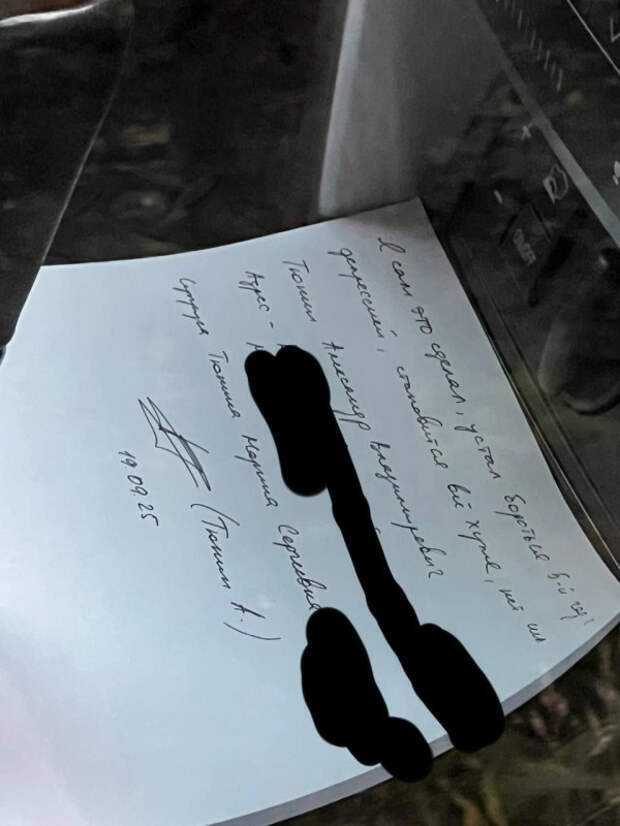 Я сам это сделал, устал бороться в
депрессией, становится всё хуже, нет сил
Тюнин Александр Владимирович
Адрес -
Супруга Тюнина Марина Сергеевна
(Тюнин А.)
19.09.25